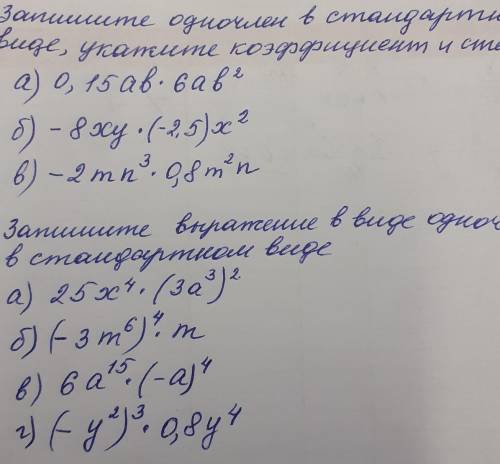 Запишите одночлен в стандартн
виде, укажите коэффициент и сте
а) 0,15ab · 6ab²
б) -8xy · (-2,5)x²
в) -2mn³ · 0,8m²n
Запишите выражение в виде одноч
в стандартном виде
а) 25x⁴ · (3a³)²
б) (-3m⁶)⁴ · m
в) 6a¹⁵ · (-a)⁴
г) (-y²)³ · 0,8y⁴